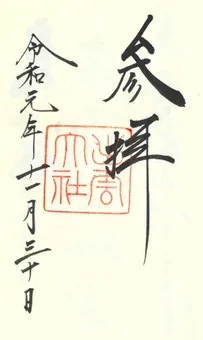 参拝
出雲大社
令和元年十一月三十日